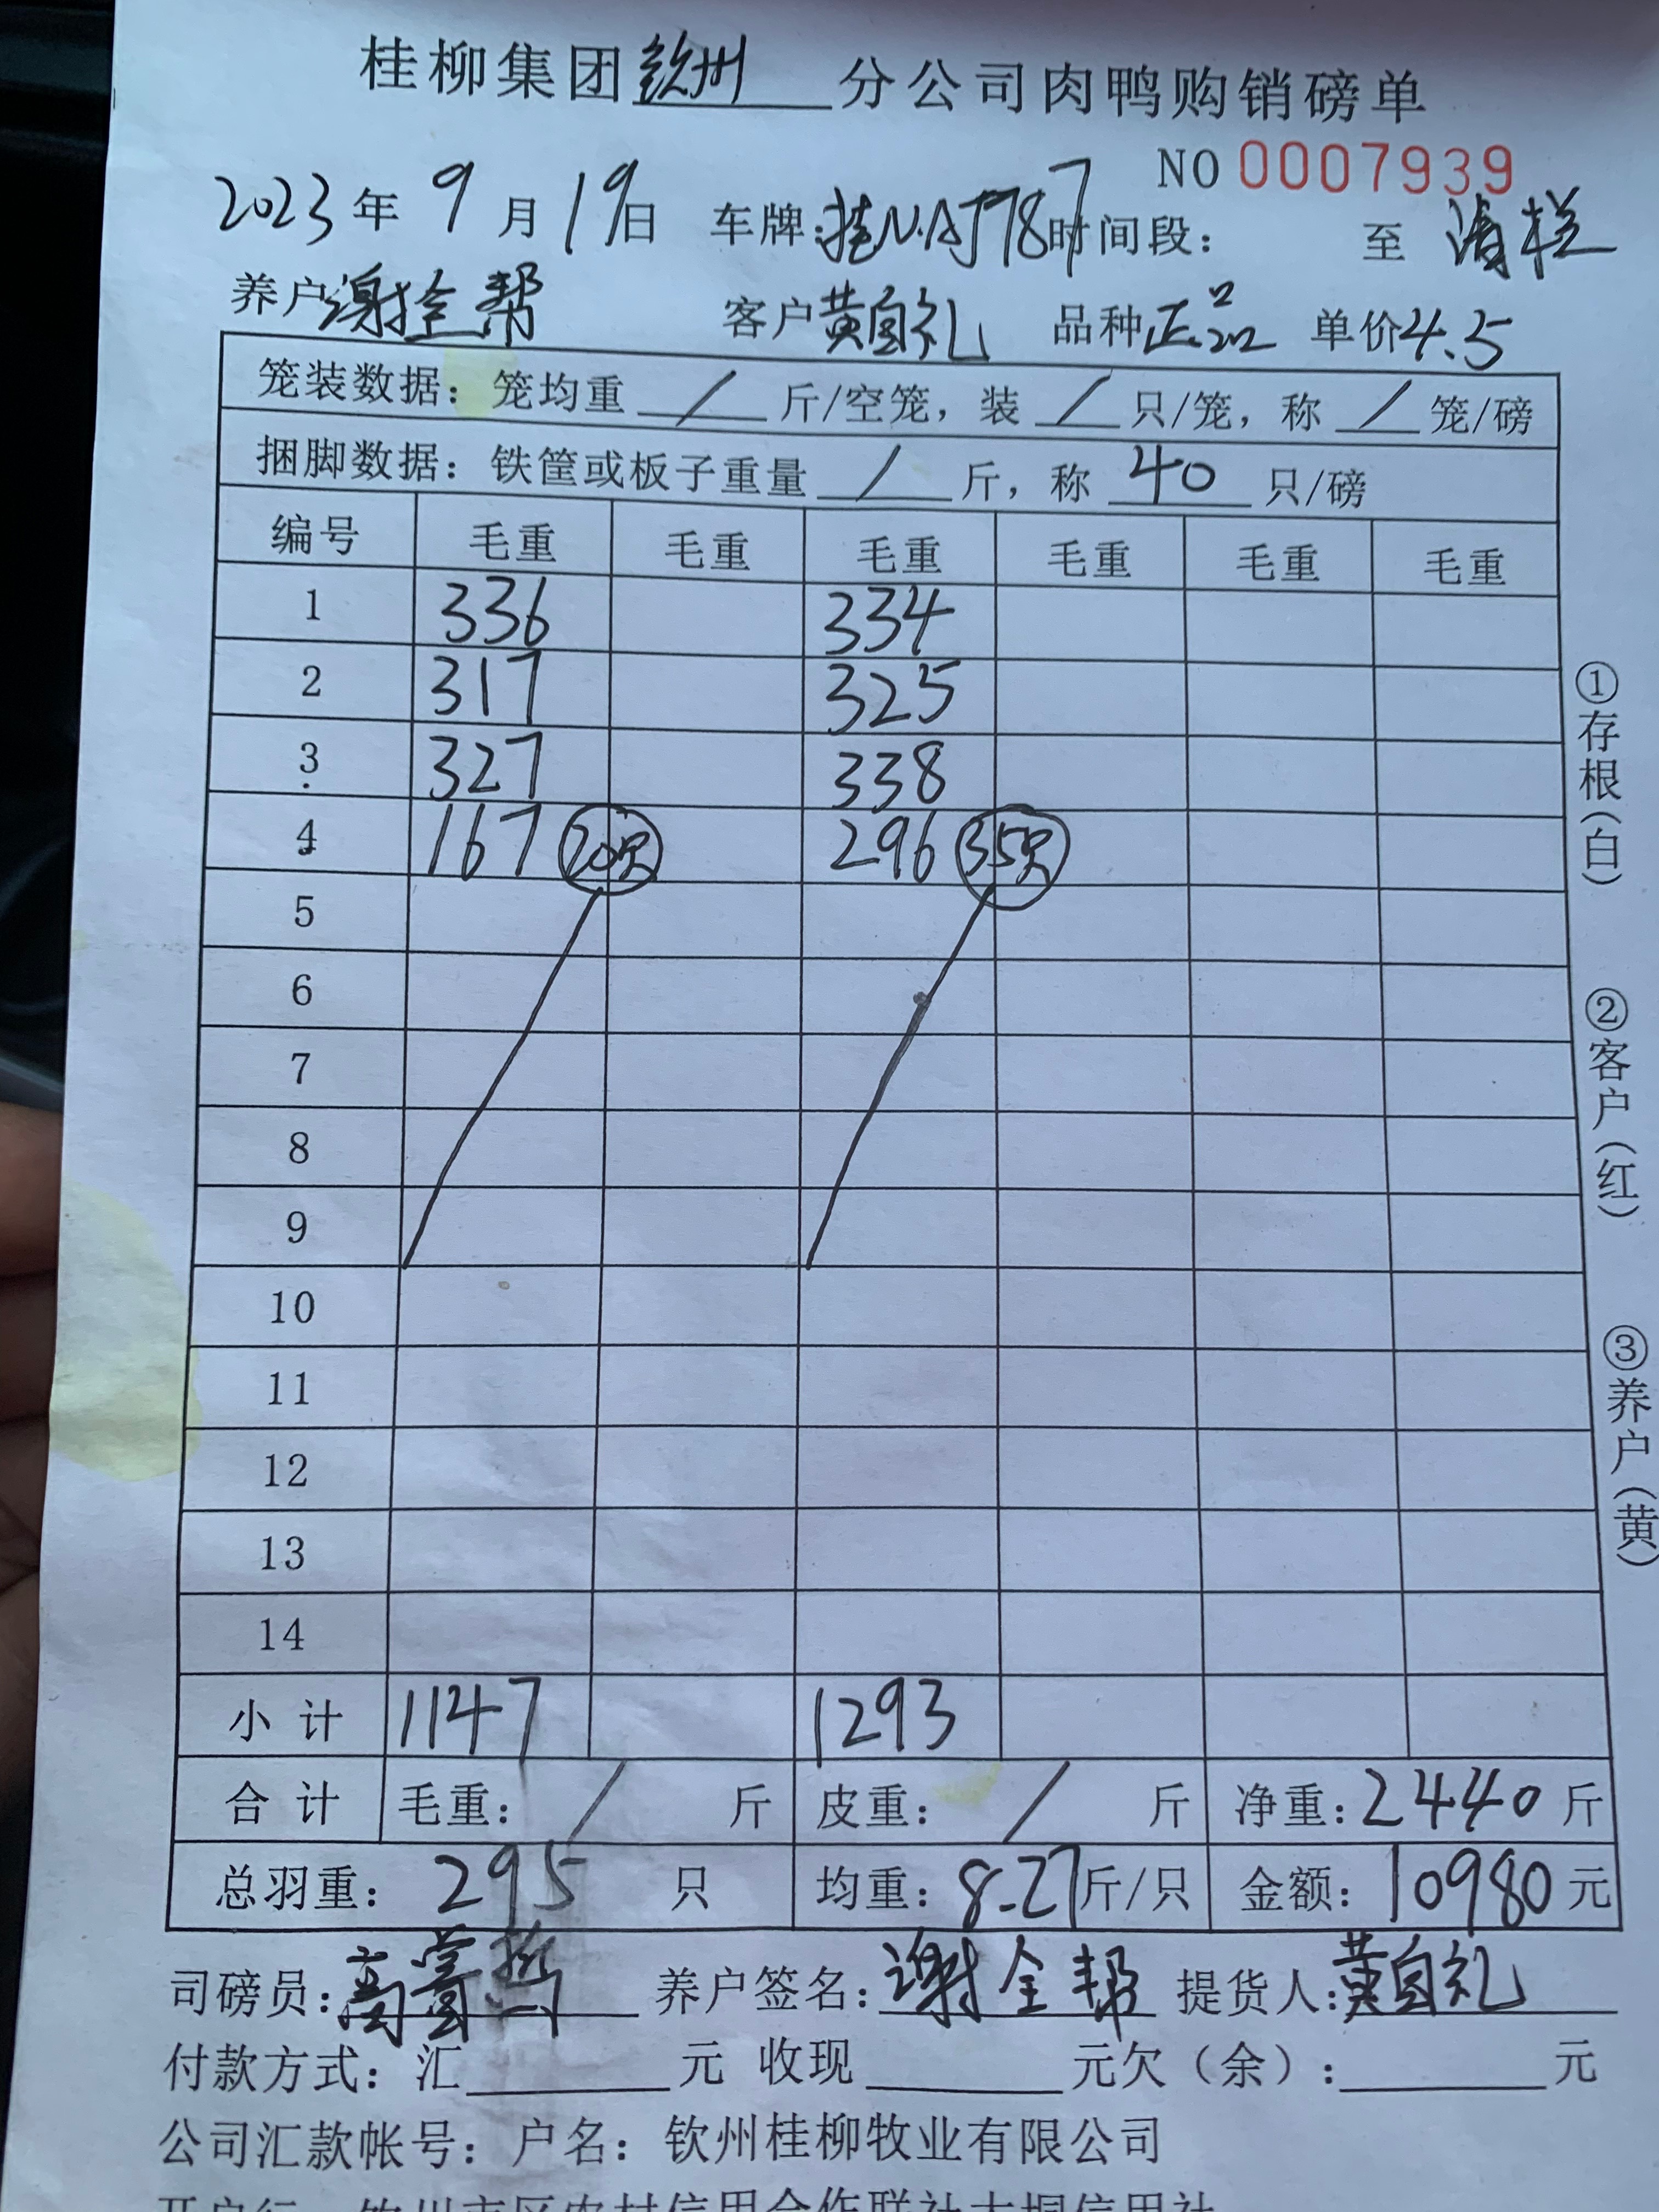 桂柳集团钦州分公司肉鸭购销磅单
NO 0007939
2023年9月19日 车牌:桂N.AJ787 时间段: 至 清栏
养户谢全帮 客户黄自礼 品种正品 单价4.5
笼装数据:笼均重 / 斤/空笼,装 / 只/笼,称 / 笼/磅
捆脚数据:铁筐或板子重量 / 斤,称 40 只/磅
编号 毛重 毛重 毛重 毛重 毛重 毛重
1 336 334
2 317 325
3 327 338
4 167 20只 296 35只
5
6
7
8
9
10
11
12
13
14
小计 1147 1293
合计 毛重: / 斤 皮重: / 斤 净重:2440斤
总羽重:295只 均重:8.27斤/只 金额:10980元
司磅员: 养户签名:谢全帮 提货人:黄自礼
付款方式:汇 元 收现 元欠(余): 元
公司汇款帐号:户名:钦州桂柳牧业有限公司
①存根(白)
②客户(红)
③养户(黄)